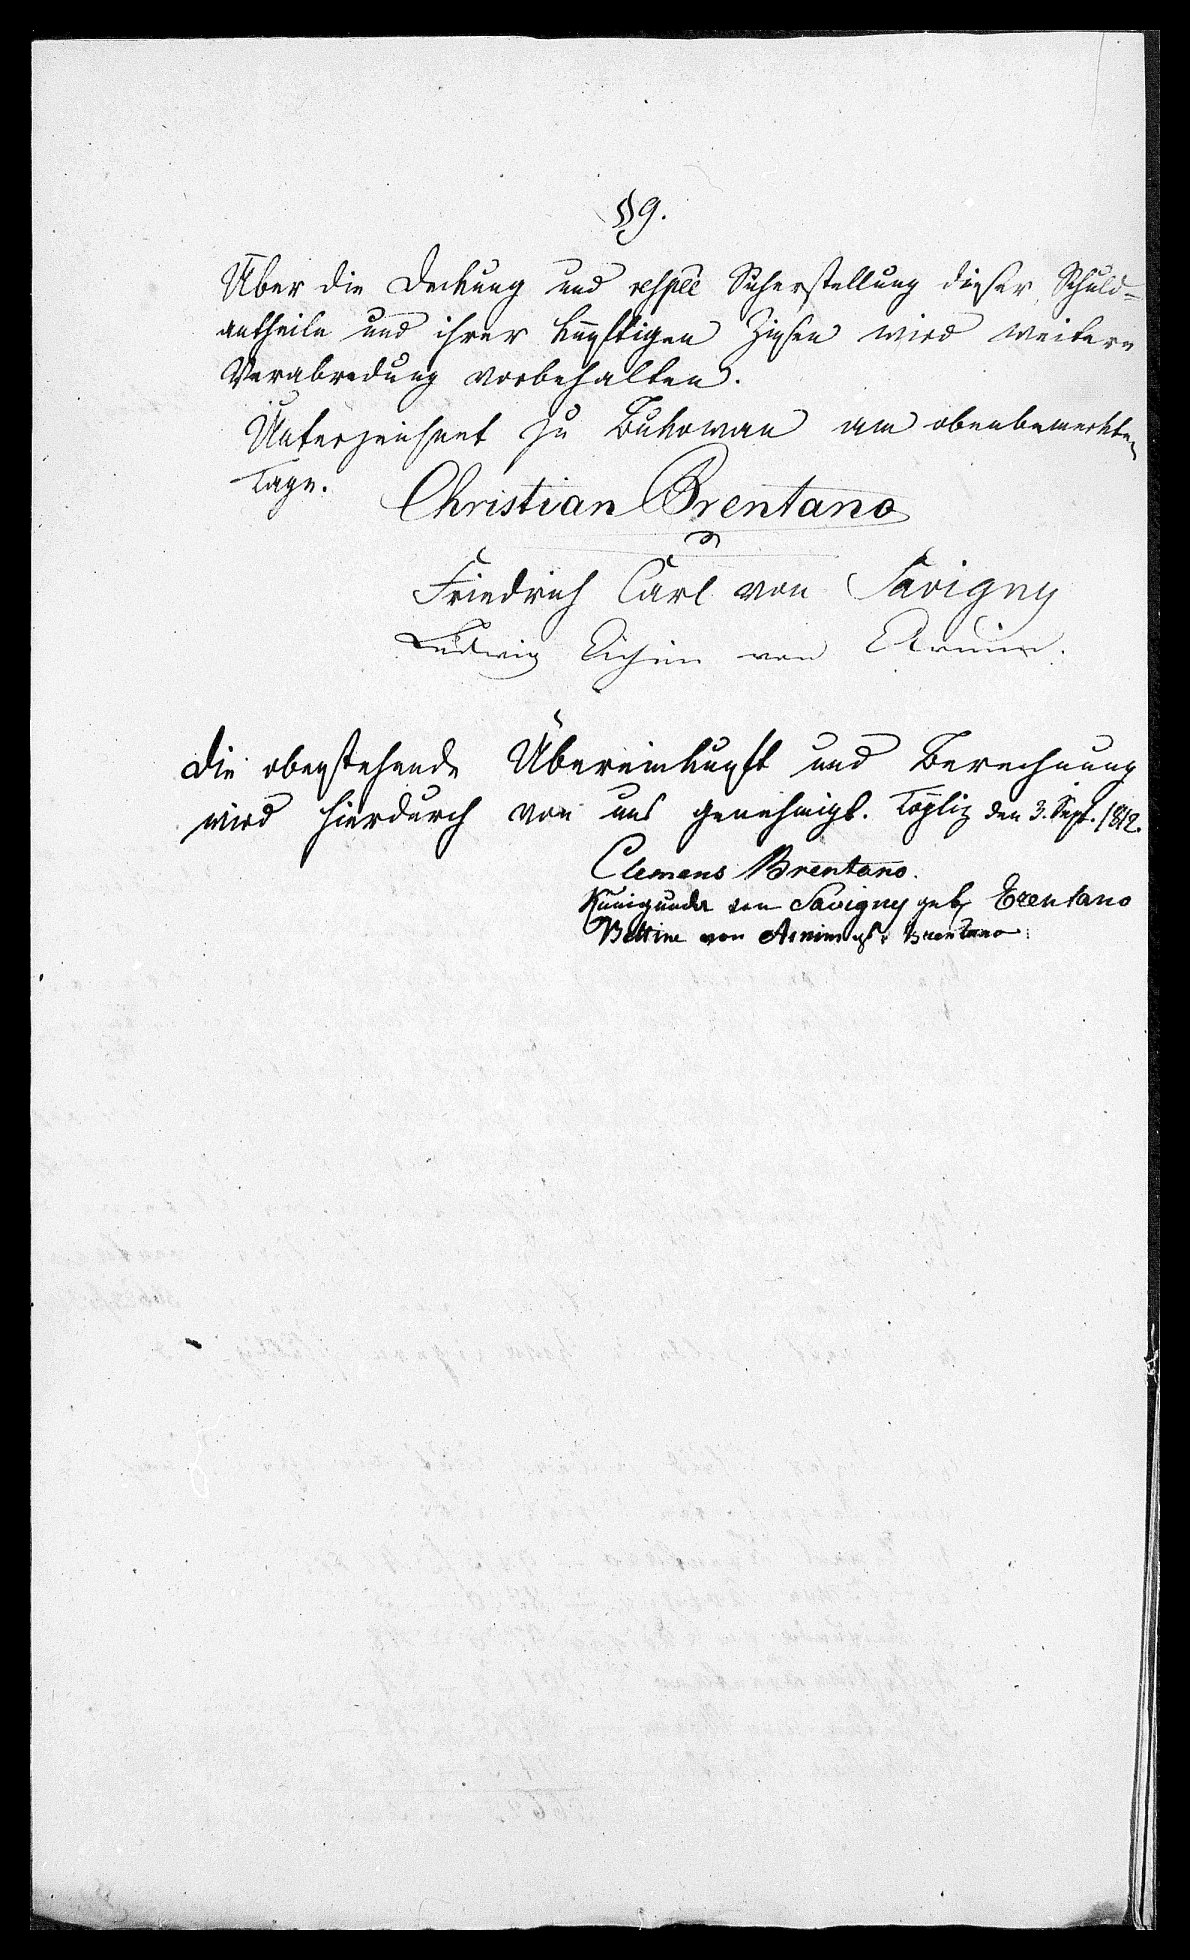 §9.
Über die Deckung und respée Sicherstellung dieser Schuld-
antheile und ihrer künftigen Zinsen wird weitere
Verabredung vorbehalten.
Unterzeichnet zu Bukowan am obenbemerkten
Tage.
Christian Brentano
Friedrich Carl von Savigny
Ludwig Achim von Arnim.
Die obenstehende Übereinkunft und Berechnung
wird hierdurch von uns genehmigt. Töplitz den 3. Sept. 1812.
Clemens Brentano.
Kunigunda von Savigny geb. Brentano
Bettine von Arnim geb. Brentano